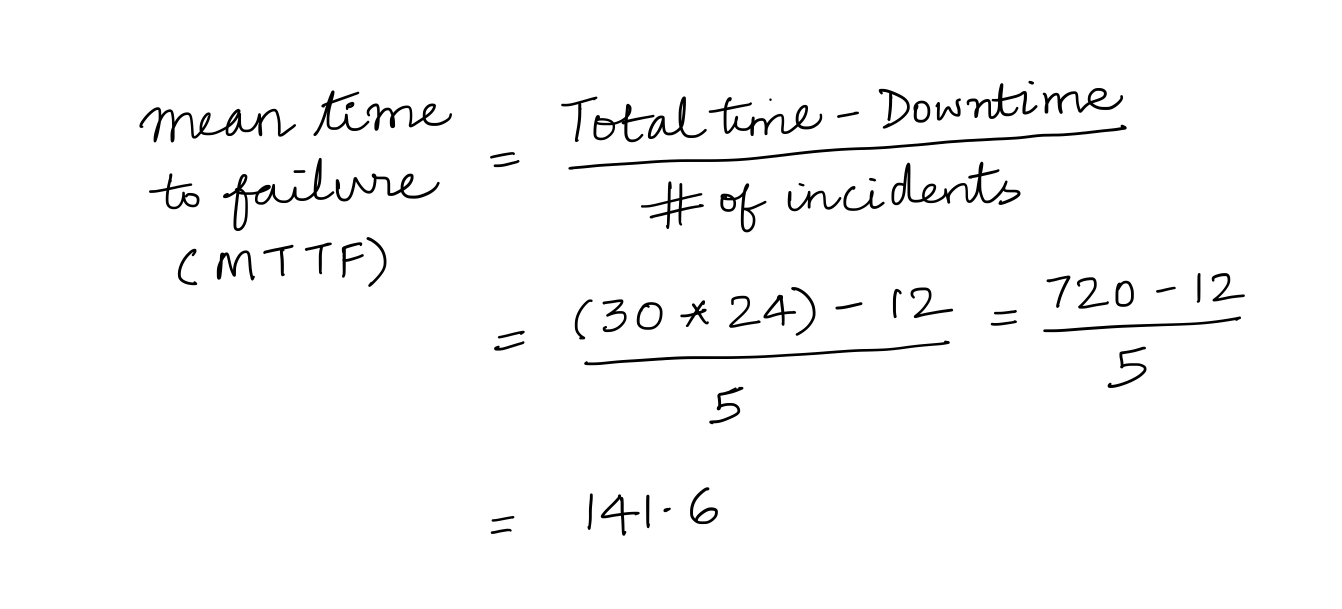 mean time
to failure
(MTTF)
= Total time - Downtime
# of incidents
= (30 * 24) - 12 = 720 - 12
5 5
= 141.6